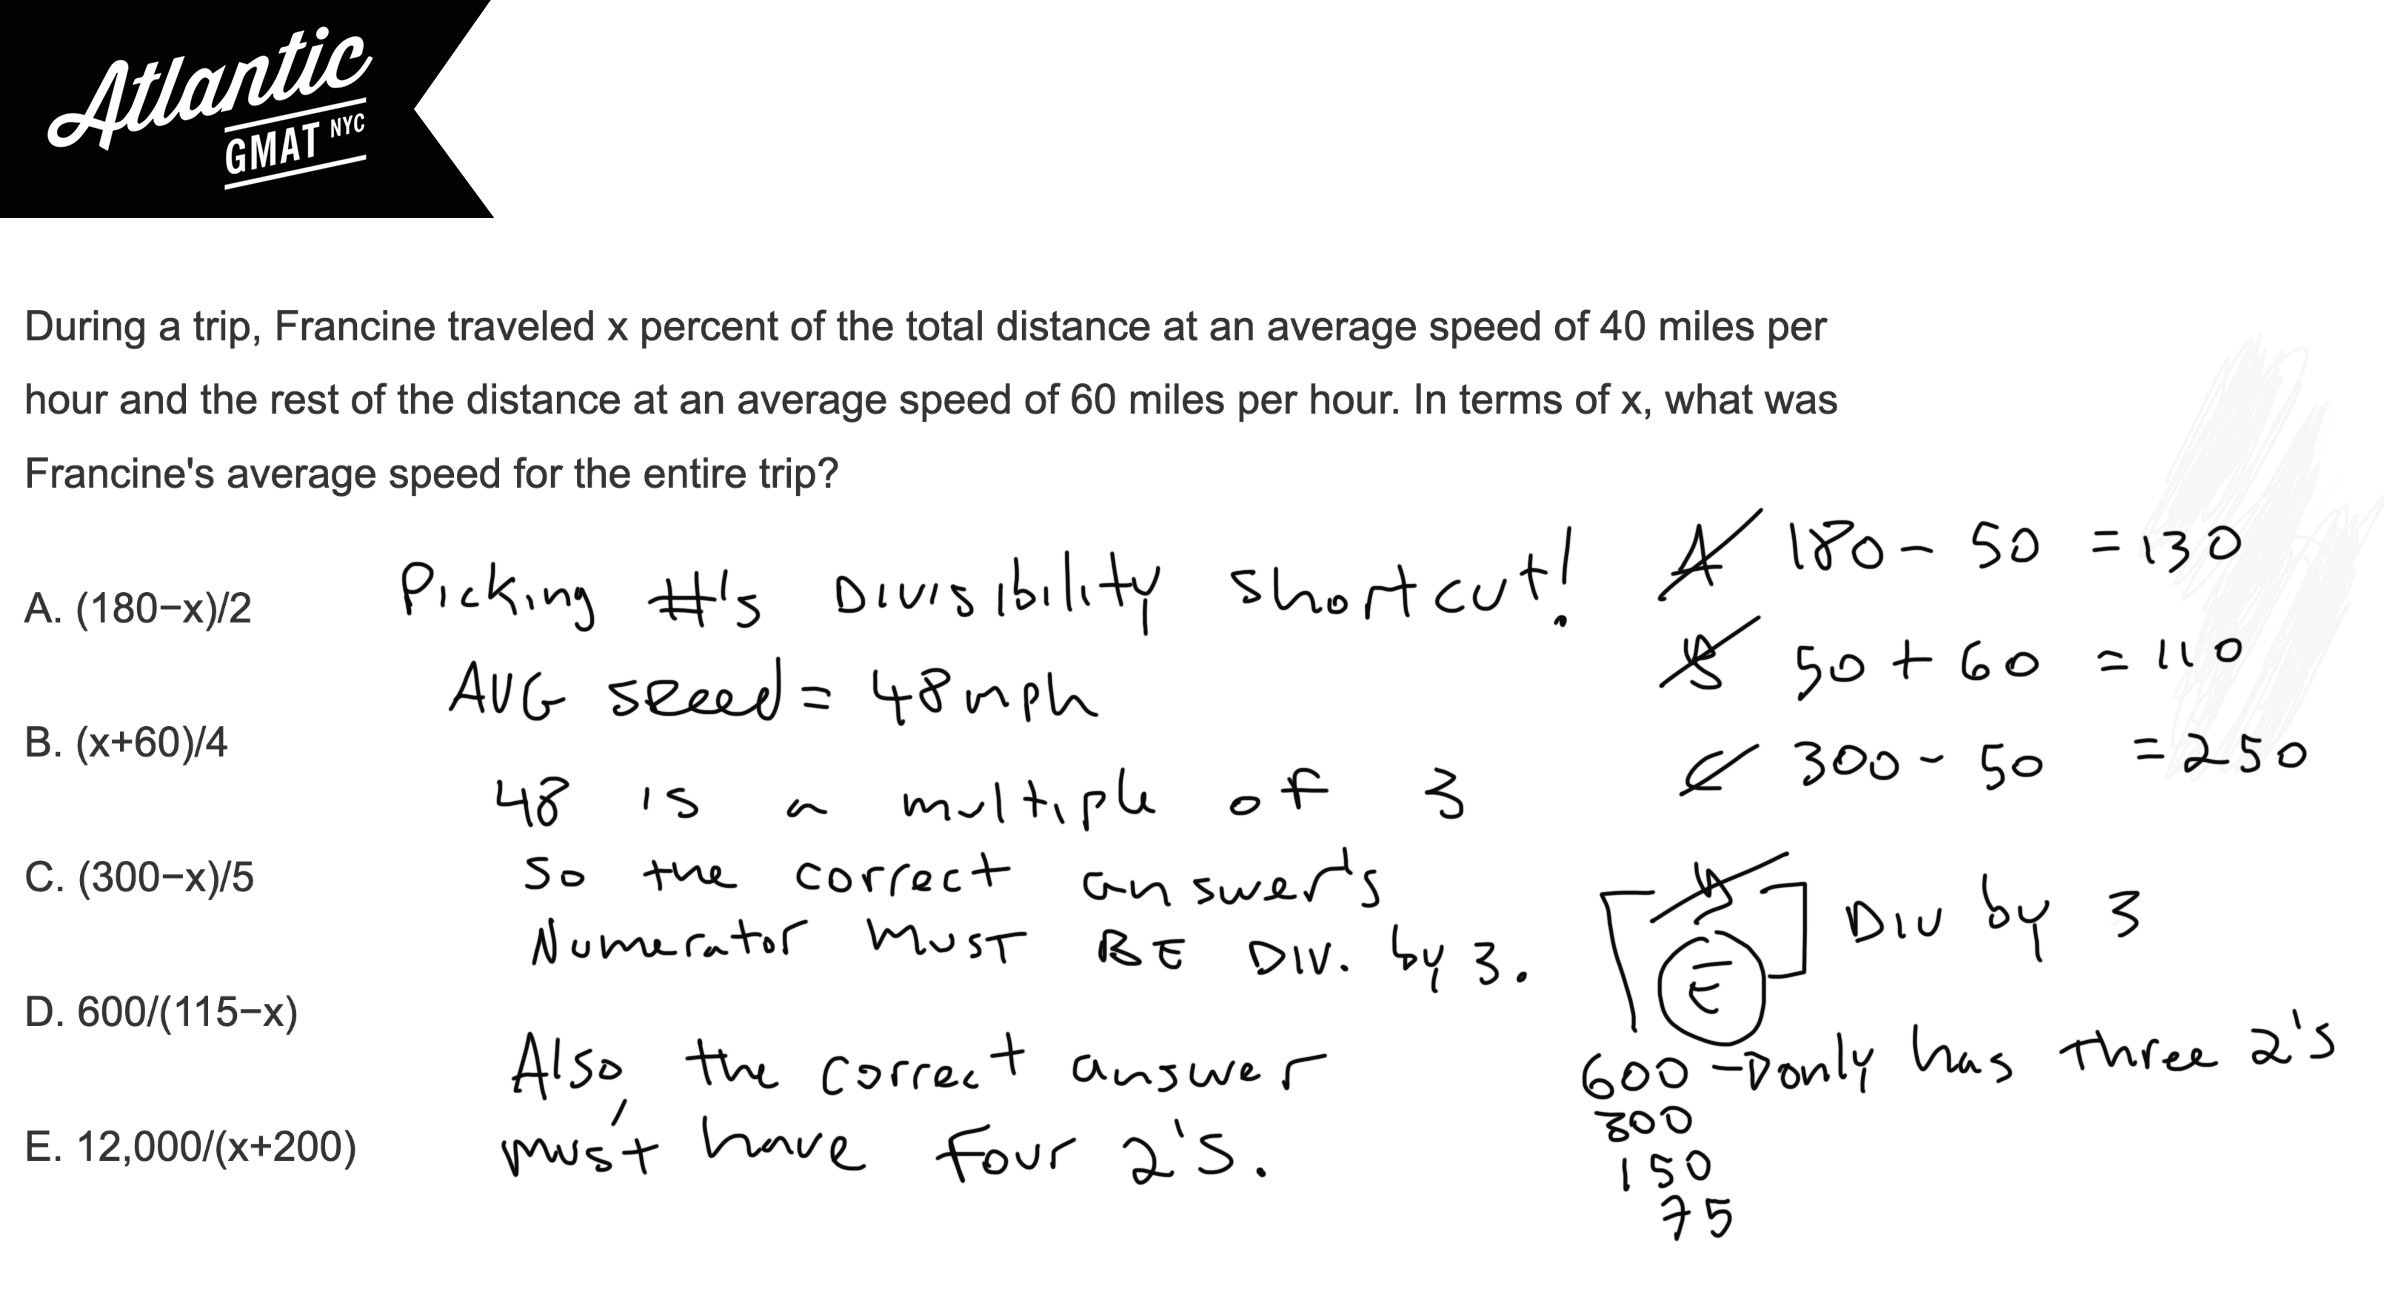 Atlantic
GMAT NYC
During a trip, Francine traveled x percent of the total distance at an average speed of 40 miles per
hour and the rest of the distance at an average speed of 60 miles per hour. In terms of x, what was
Francine's average speed for the entire trip?
A. (180−x)/2
B. (x+60)/4
C. (300−x)/5
D. 600/(115−x)
E. 12,000/(x+200)
Picking #'s Divisibility shortcut!
AVG speed = 48 mph
48 is a multiple of 3
so the correct answer's
Numerator MUST BE DIV. by 3.
Also, the correct answer
must have four 2's.
A 180 - 50 = 130
B 50 + 60 = 110
C 300 - 50 = 250
D
E
DIV by 3
600 - D only has three 2's
300
150
75